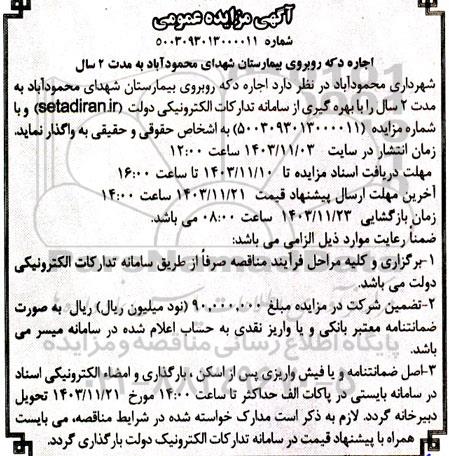 آگهی مزایده عمومی
شماره ۵۰۰۳۰۹۳۰۱۳۰۰۰۰۱۱
اجاره دکه روبروی بیمارستان شهدای محمودآباد به مدت ۲ سال
شهرداری محمودآباد در نظر دارد اجاره دکه روبروی بیمارستان شهدای محمودآباد به
مدت ۲ سال را با بهره گیری از سامانه تدارکات الکترونیکی دولت (setadiran.ir) و با
شماره مزایده (۵۰۰۳۰۹۳۰۱۳۰۰۰۰۱۱) به اشخاص حقوقی و حقیقی به واگذار نماید.
زمان انتشار در سایت ۱۴۰۳/۱۱/۰۳ ساعت ۱۲:۰۰
مهلت دریافت اسناد مزایده تا ۱۴۰۳/۱۱/۱۰ تا ساعت ۱۶:۰۰
آخرین مهلت ارسال پیشنهاد قیمت ۱۴۰۳/۱۱/۲۱ ساعت ۱۴:۰۰
زمان بازگشایی ۱۴۰۳/۱۱/۲۳ ساعت ۰۸:۰۰ می باشد.
ضمناً رعایت موارد ذیل الزامی می باشد:
۱-برگزاری و کلیه مراحل فرآیند مناقصه صرفاً از طریق سامانه تدارکات الکترونیکی
دولت می باشد.
۲-تضمین شرکت در مزایده مبلغ ۹۰,۰۰۰,۰۰۰ (نود میلیون ریال) ریال به صورت
ضمانتنامه معتبر بانکی و یا واریز نقدی به حساب اعلام شده در سامانه میسر می
باشد.
پایگاه اطلاع رسانی مناقصه و مزایده
۳-اصل ضمانتنامه و یا فیش واریزی پس از اسکن ، بارگذاری و امضاء الکترونیکی اسناد
در سامانه بایستی در پاکات الف حداکثر تا ساعت ۱۴:۰۰ مورخ ۱۴۰۳/۱۱/۲۱ تحویل
دبیرخانه گردد. لازم به ذکر است مدارک خواسته شده در شرایط مناقصه، می بایست
همراه با پیشنهاد قیمت در سامانه تدارکات الکترونیک دولت بارگذاری گردد.